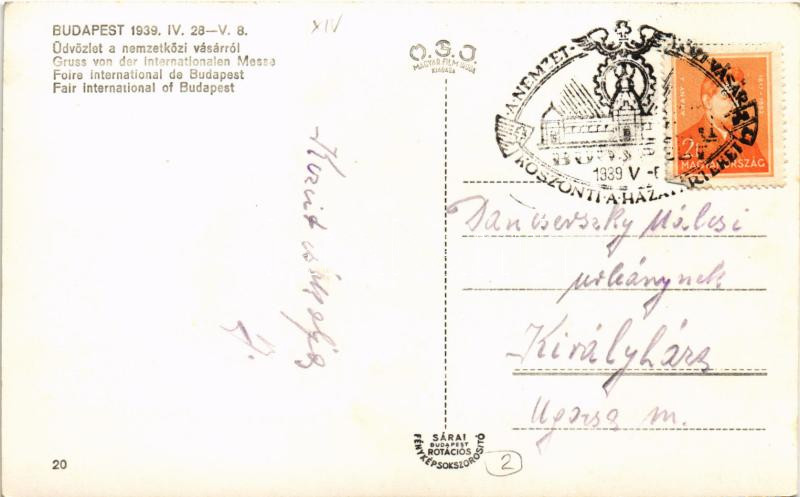 BUDAPEST 1939. IV. 28—V. 8.
Üdvözlet a nemzetközi vásárról
Gruss von der internationalen Messe
Foire international de Budapest
Fair international of Budapest
XIV
M.F.I.
MAGYAR FILM IRODA
KIADÁSA
A·NEMZETKÖZI·VÁSÁR
BUDAPEST
1939 V
KÖSZÖNTI·A·HAZATÉRTEKET
ARANY J.
1817-1882
20
MAGYARORSZÁG
Dancsevszky Málcsi
urhánynek
Királyháza
Ugocsa m.
SÁRAI
BUDAPEST
ROTÁCIÓS
FÉNYKÉPSOKSZOROSÍTÓ
2
20